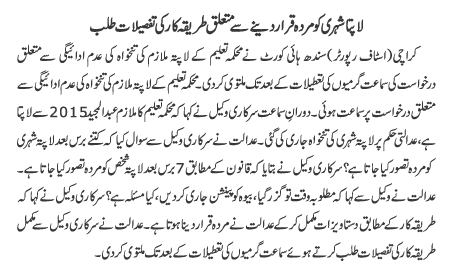 لاپتا شہری کو مردہ قرار دینے سے متعلق طریقہ کار کی تفصیلات طلب
کراچی (اسٹاف رپورٹر) سندھ ہائی کورٹ نے محکمہ تعلیم کے لاپتہ ملازم کی تنخواہ کی عدم ادائیگی سے متعلق
درخواست کی سماعت گرمیوں کی تعطیلات کے بعد تک ملتوی کردی۔ محکمہ تعلیم کے لاپتہ ملازم کی تنخواہ کی عدم ادائیگی سے
متعلق درخواست پر سماعت ہوئی۔ دوران سماعت سرکاری وکیل نے کہا کہ محکمہ تعلیم کا ملازم عبدالمجید 2015 سے لاپتا
ہے، عدالتی حکم پر لاپتہ شہری کی تنخواہ جاری کی گئی۔ عدالت نے سرکاری وکیل سے سوال کیا کہ کتنے برس بعد لاپتہ شہری
کو مردہ تصور کیا جاتا ہے؟ سرکاری وکیل نے بتایا کہ قانون کے مطابق 7 برس بعد لاپتہ شخص کو مردہ تصور کیا جاتا ہے۔
عدالت نے وکیل سے کہا کہ مطلوبہ وقت تو گزر گیا، بیوہ کو پینشن جاری کردیں، کیا مسئلہ ہے؟ سرکاری وکیل نے کہا کہ
طریقہ کار کے مطابق دستاویزات مکمل کرکے عدالت نے مردہ قرار دینا ہوتا ہے۔ عدالت نے سرکاری وکیل سے مکمل
طریقہ کار کی تفصیلات طلب کرتے ہوئے سماعت گرمیوں کی تعطیلات کے بعد تک ملتوی کردی۔